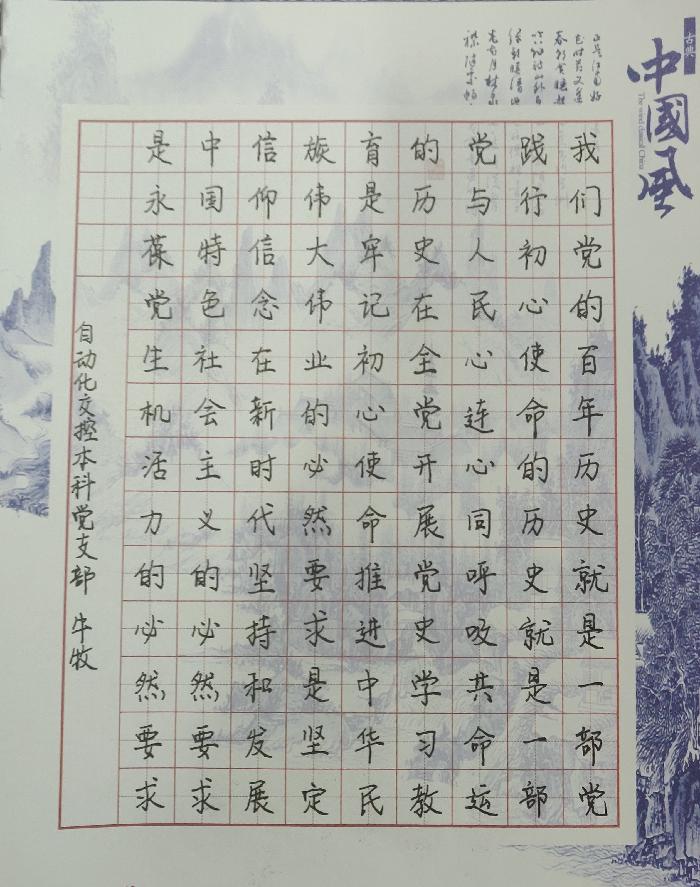 我们党的百年历史就是一部党
践行初心使命的历史就是一部
党与人民心连心同呼吸共命运
的历史在全党开展党史学习教
育是牢记初心使命推进中华民
族伟大伟业的必然要求是坚定
信仰信念在新时代坚持和发展
中国特色社会主义的必必然要求
是永葆党生机活力的必然要求
自动化交控本科党支部 牛牧
古典
中國風
The wind classical China